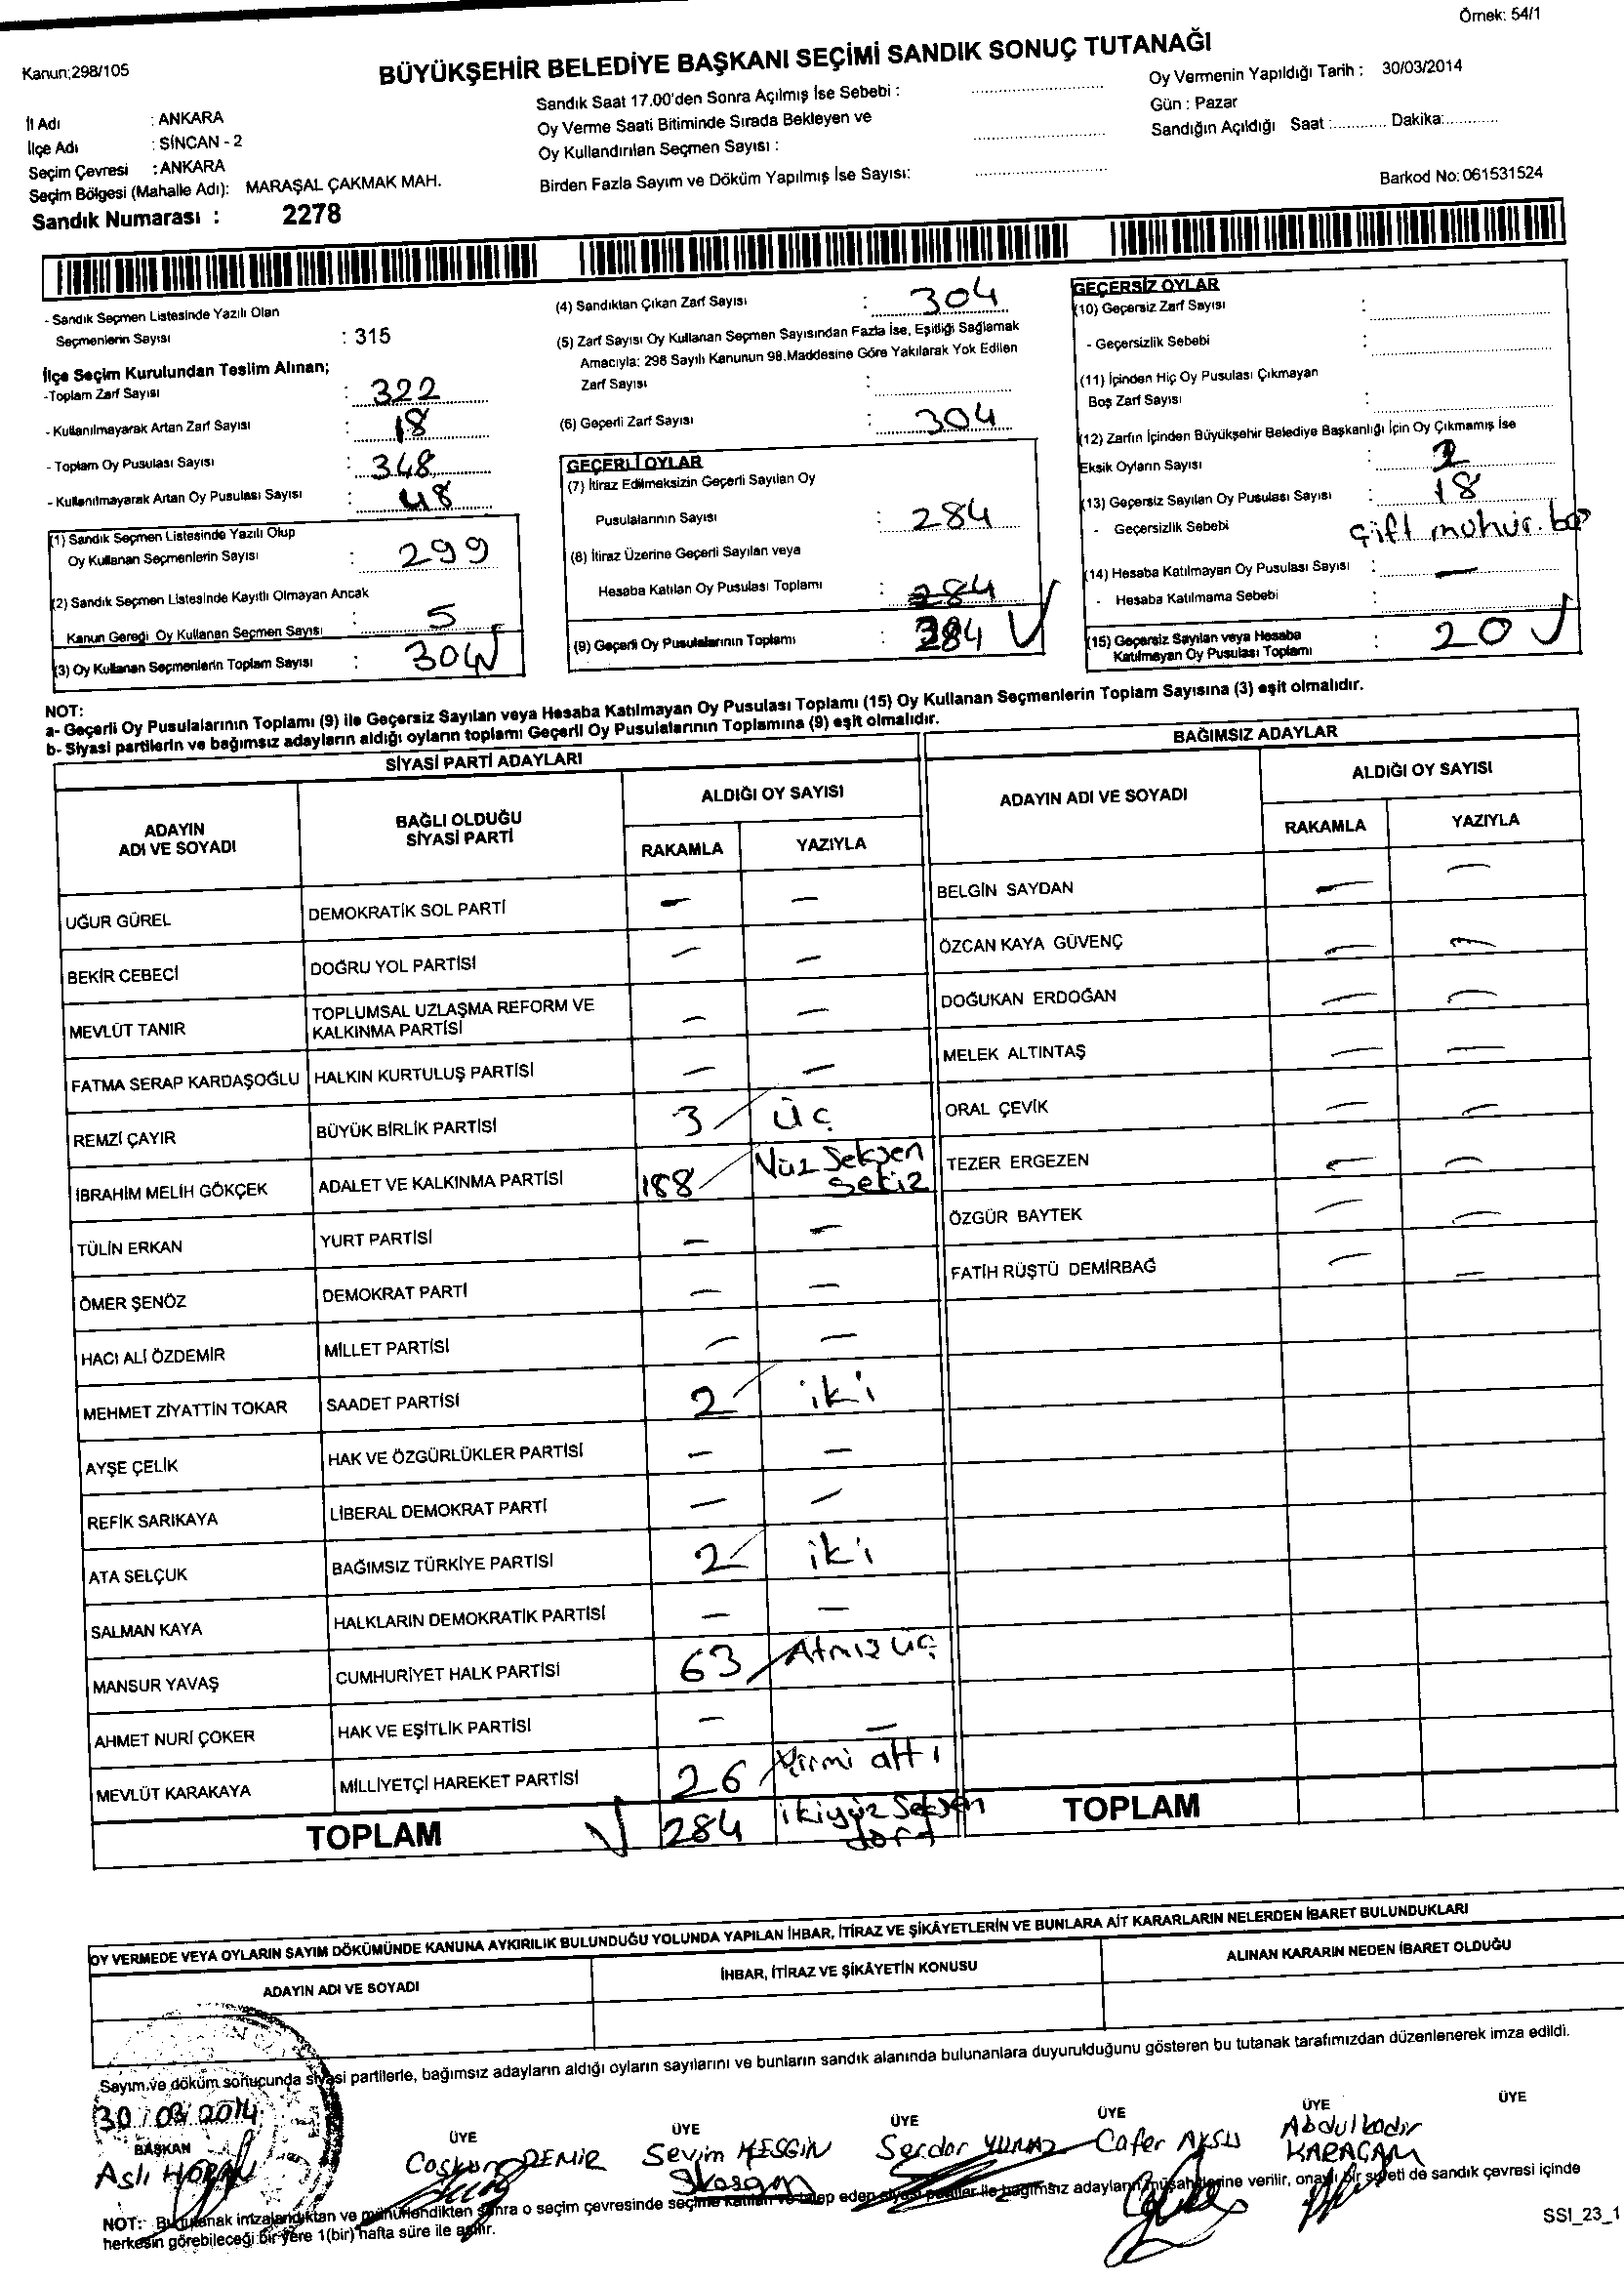 Örnek: 54/1
Kanun;298/105
BÜYÜKŞEHİR BELEDİYE BAŞKANI SEÇİMİ SANDIK SONUÇ TUTANAĞI
İl Adı : ANKARA
İlçe Adı : SİNCAN - 2
Seçim Çevresi : ANKARA
Seçim Bölgesi (Mahalle Adı): MARAŞAL ÇAKMAK MAH.
Sandık Numarası : 2278
Sandık Saat 17.00'den Sonra Açılmış İse Sebebi :
Oy Verme Saati Bitiminde Sırada Bekleyen ve
Oy Kullandırılan Seçmen Sayısı :
Birden Fazla Sayım ve Döküm Yapılmış İse Sayısı:
Oy Vermenin Yapıldığı Tarih : 30/03/2014
Gün : Pazar
Sandığın Açıldığı Saat :............ Dakika:............
Barkod No: 061531524
- Sandık Seçmen Listesinde Yazılı Olan
Seçmenlerin Sayısı : 315
İlçe Seçim Kurulundan Teslim Alınan;
-Toplam Zarf Sayısı : 322
- Kullanılmayarak Artan Zarf Sayısı : 18
- Toplam Oy Pusulası Sayısı : 348
- Kullanılmayarak Artan Oy Pusulası Sayısı : 48
(1) Sandık Seçmen Listesinde Yazılı Olup
Oy Kullanan Seçmenlerin Sayısı : 299
(2) Sandık Seçmen Listesinde Kayıtlı Olmayan Ancak
Kanun Gereği Oy Kullanan Seçmen Sayısı : 5
(3) Oy Kullanan Seçmenlerin Toplam Sayısı : 304
(4) Sandıktan Çıkan Zarf Sayısı : 304
(5) Zarf Sayısı Oy Kullanan Seçmen Sayısından Fazla İse, Eşitliği Sağlamak
Amacıyla: 298 Sayılı Kanunun 98.Maddesine Göre Yakılarak Yok Edilen
Zarf Sayısı :
(6) Geçerli Zarf Sayısı : 304
GEÇERLİ OYLAR
(7) İtiraz Edilmeksizin Geçerli Sayılan Oy
Pusulalarının Sayısı : 284
(8) İtiraz Üzerine Geçerli Sayılan veya
Hesaba Katılan Oy Pusulası Toplamı : 284
(9) Geçerli Oy Pusulalarının Toplamı : 284
GEÇERSİZ OYLAR
(10) Geçersiz Zarf Sayısı :
- Geçersizlik Sebebi :
(11) İçinden Hiç Oy Pusulası Çıkmayan
Boş Zarf Sayısı :
(12) Zarfın İçinden Büyükşehir Belediye Başkanlığı İçin Oy Çıkmamış İse
Eksik Oyların Sayısı : 2
(13) Geçersiz Sayılan Oy Pusulası Sayısı : 18
- Geçersizlik Sebebi Çift mühür.
(14) Hesaba Katılmayan Oy Pusulası Sayısı : —
- Hesaba Katılmama Sebebi :
(15) Geçersiz Sayılan veya Hesaba
Katılmayan Oy Pusulası Toplamı : 20
NOT:
a- Geçerli Oy Pusulalarının Toplamı (9) ile Geçersiz Sayılan veya Hesaba Katılmayan Oy Pusulası Toplamı (15) Oy Kullanan Seçmenlerin Toplam Sayısına (3) eşit olmalıdır.
b- Siyasi partilerin ve bağımsız adayların aldığı oyların toplamı Geçerli Oy Pusulalarının Toplamına (9) eşit olmalıdır.
SİYASİ PARTİ ADAYLARI
ADAYIN ADI VE SOYADI BAĞLI OLDUĞU SİYASİ PARTİ ALDIĞI OY SAYISI
RAKAMLA YAZIYLA
UĞUR GÜREL DEMOKRATİK SOL PARTİ — —
BEKİR CEBECİ DOĞRU YOL PARTİSİ — —
MEVLÜT TANIR TOPLUMSAL UZLAŞMA REFORM VE KALKINMA PARTİSİ — —
FATMA SERAP KARDAŞOĞLU HALKIN KURTULUŞ PARTİSİ — —
REMZİ ÇAYIR BÜYÜK BİRLİK PARTİSİ 3 Üç
İBRAHİM MELİH GÖKÇEK ADALET VE KALKINMA PARTİSİ 188 Yüz Seksen sekiz
TÜLİN ERKAN YURT PARTİSİ — —
ÖMER ŞENÖZ DEMOKRAT PARTİ — —
HACI ALİ ÖZDEMİR MİLLET PARTİSİ — —
MEHMET ZİYATTİN TOKAR SAADET PARTİSİ 2 iki
AYŞE ÇELİK HAK VE ÖZGÜRLÜKLER PARTİSİ — —
REFİK SARIKAYA LİBERAL DEMOKRAT PARTİ — —
ATA SELÇUK BAĞIMSIZ TÜRKİYE PARTİSİ 2 iki
SALMAN KAYA HALKLARIN DEMOKRATİK PARTİSİ — —
MANSUR YAVAŞ CUMHURİYET HALK PARTİSİ 63 Atmış üç
AHMET NURİ ÇOKER HAK VE EŞİTLİK PARTİSİ — —
MEVLÜT KARAKAYA MİLLİYETÇİ HAREKET PARTİSİ 26 Yirmi altı
TOPLAM 284 ikiyüz Seksen dört
BAĞIMSIZ ADAYLAR
ADAYIN ADI VE SOYADI ALDIĞI OY SAYISI
RAKAMLA YAZIYLA
BELGİN SAYDAN — —
ÖZCAN KAYA GÜVENÇ — —
DOĞUKAN ERDOĞAN — —
MELEK ALTINTAŞ — —
ORAL ÇEVİK — —
TEZER ERGEZEN — —
ÖZGÜR BAYTEK — —
FATİH RÜŞTÜ DEMİRBAĞ — —
TOPLAM
OY VERMEDE VEYA OYLARIN SAYIM DÖKÜMÜNDE KANUNA AYKIRILIK BULUNDUĞU YOLUNDA YAPILAN İHBAR, İTİRAZ VE ŞİKÂYETLERİN VE BUNLARA AİT KARARLARIN NELERDEN İBARET BULUNDUKLARI
ADAYIN ADI VE SOYADI İHBAR, İTİRAZ VE ŞİKÂYETİN KONUSU ALINAN KARARIN NEDEN İBARET OLDUĞU
Sayım ve döküm sonucunda siyasi partilerle, bağımsız adayların aldığı oyların sayılarını ve bunların sandık alanında bulunanlara duyurulduğunu gösteren bu tutanak tarafımızdan düzenlenerek imza edildi.
30/03/2014
BAŞKAN ÜYE ÜYE ÜYE ÜYE ÜYE ÜYE
Aslı Coşkun DEMİR Sevim KESGİN Serdar YILMAZ Cafer AKSU Abdulkadir KARAÇAM
NOT: Bu tutanak imzalandıktan ve mühürlendikten sonra o seçim çevresinde seçime katılan ve talep eden siyasi partiler ile bağımsız adayların müşahitlerine verilir, onaylı bir sureti de sandık çevresi içinde
herkesin görebileceği bir yere 1(bir) hafta süre ile asılır.
SSI_23_1